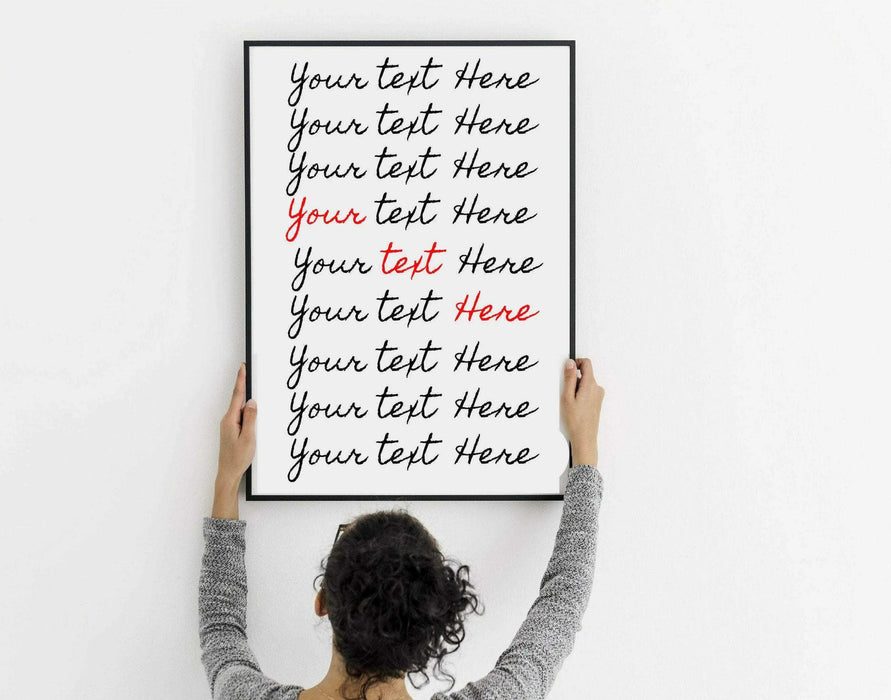 Your text Here
Your text Here
Your text Here
Your text Here
Your text Here
Your text Here
Your text Here
Your text Here
Your text Here